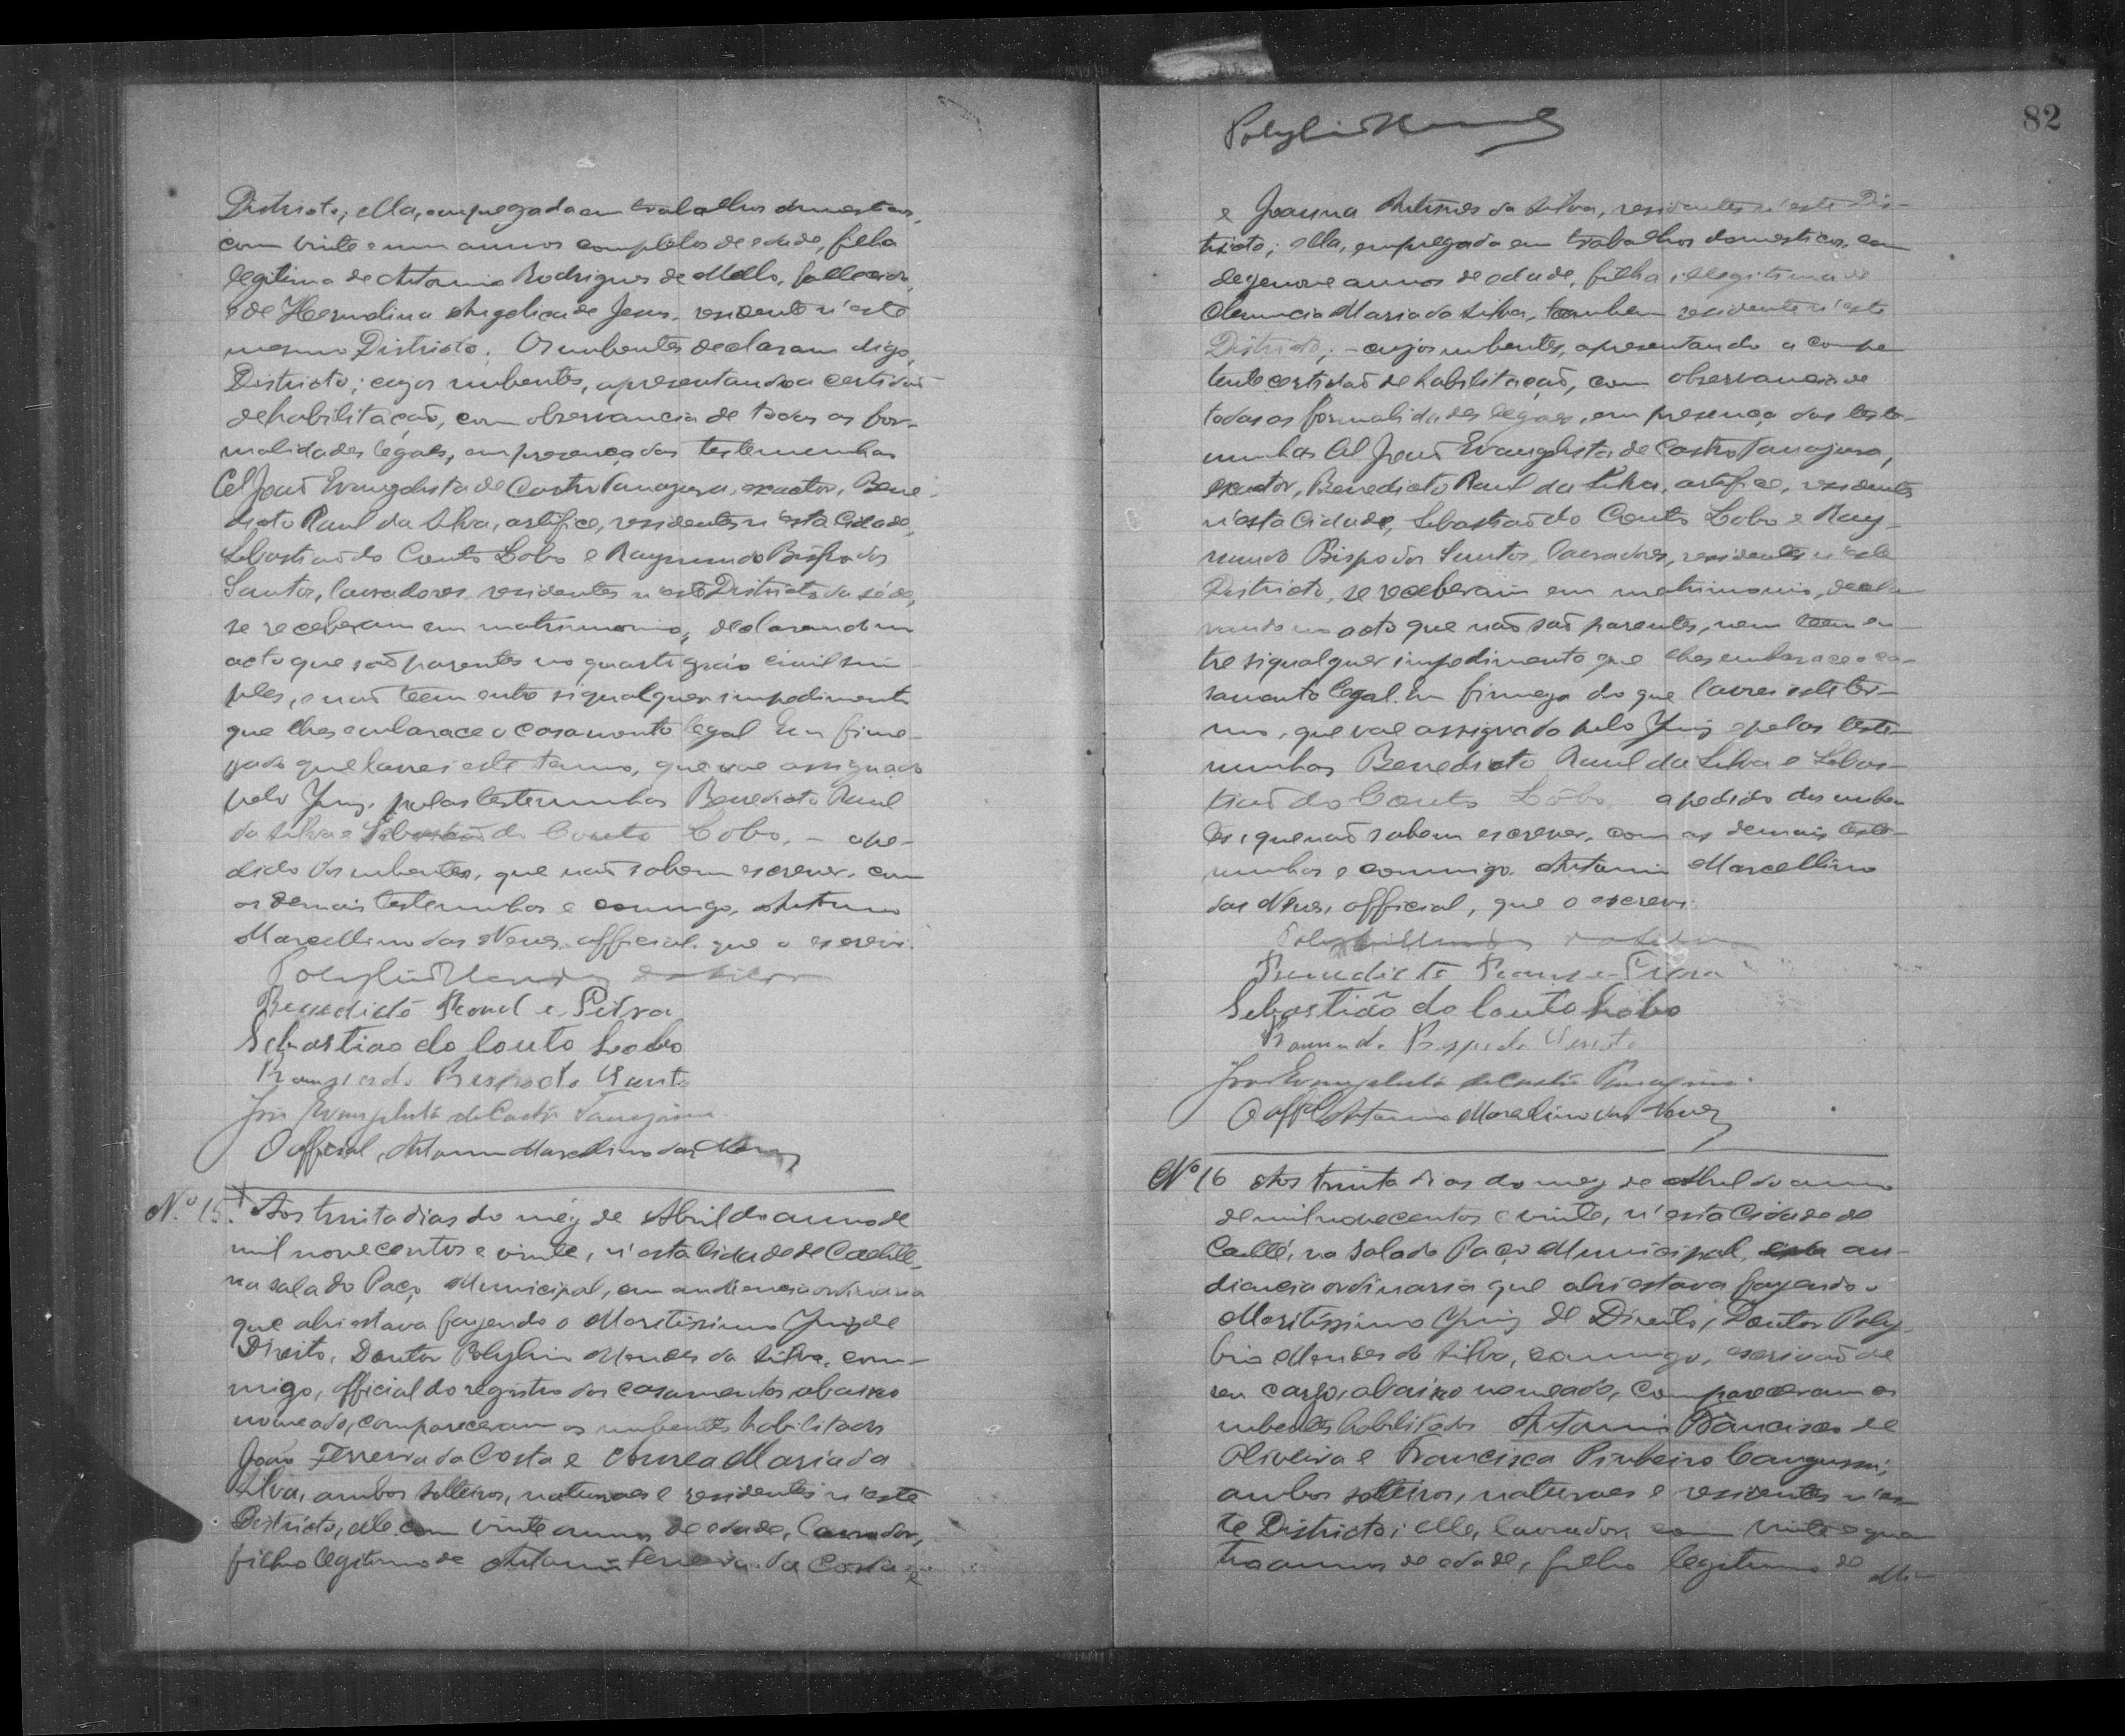 Districto; ella, empregada em trabalhos domesticos,
com vinte e um annos completos de edade, filha
legitima de Antonio Rodrigues de Mello, fallecido,
e de Hermelina Angelica de Jesus, residente n'este
mesmo Districto. Os nubentes declaram digo,
Districto; cujos nubentes, apresentando a certidão
de habilitação, com observancia de todas as for-
malidades légaes, em presença das testemunhas
Cel João Evangelista de Castro Tanajura, exactor, Bene-
dicto Raul da Silva, artifice, residentes n'esta Cidade,
Sebastião do Couto Lobo e Raymundo Bispo dos
Santos, lavradores residentes n'este Districto da séde,
se receberam em matrimonio, declarando no
acto que são parentes no quarto gráo civil sim-
ples, e não teem entre si qualquer impedimento
que lhes embarace o casamento legal Em firme-
za do que lavrei este termo, que vae assignado
pelo Juiz, pelas testemunhas Benedicto Raul
da Silva e Sebastião do Couto Lobo, - a pe-
dido dos nubentes, que não sabem escrever, com
as demais testemunhas e comigo, Antonio
Marcellino das Neves official que o escrevi.
Polybio Mendes da Silva
Benedicto Raul e Silva
Sebastiao do Couto Lobo
Raymundo Bispo do Santo
João Evangelista de Castro Tanajura
O official, Antonio Marcellino das Neves
N.º 15. Aos trinta dias do mêz de Abril do anno de
mil novecentos e vinte, n'esta Cidade de Caetité,
na sala do Paço Municipal, em audiencia ordinaria
que ahi estava fazendo o Meritissimo Juiz de
Direito, Doutor Polybio Mendes da Silva, com-
migo, official do registro dos casamentos abaixo
nomeado, compareceram os nubentes habilitados
João Ferreira da Costa e Maria da
Silva, ambos solteiros, naturaes e residentes n'este
Districto; elle com vinte annos de edade, lavrador,
filho legitimo de Antonio Ferreira da Costa e
82
Polybio Mendes
e Joanna Antunes da Silva, residentes n'este Dis-
tricto; ella, empregada em trabalhos domesticos, com
dezenove annos de edade, filha illegitima de
Maria da Silva, tambem residente n'este
Districto; - cujos nubentes, apresentando a compe-
tente certidão de habilitação, com observancia de
todas as formalidades legaes, em presença das teste-
munhas Cel João Evangelista de Castro Tanajura,
exactor, Benedicto Raul da Silva, artifice, residentes
n'esta Cidade, Sebastião do Couto Lobo e Ray-
mundo Bispo dos Santos, lavradores, residentes n'este
Districto, se receberam em matrimonio, decla-
rando no acto que não são parentes, nem teem en-
tre si qualquer impedimento que lhes embarace o ca-
samento legal. Em firmeza do que lavrei este ter-
mo, que vae assignado pelo Juiz e pelas teste-
munhas Benedicto Raul da Silva e Sebas-
tião do Couto Lôbo, a pedido dos nuben-
tes, que não sabem escrever, com as demais teste-
munhas e commigo, Antonio Marcellino
das Neves, official, que o escrevi.
Polybio Mendes da Silva
Benedicto Raul e Silva
Sebastião do Couto Lobo
Raymundo Bispo do Santo
João Evangelista de Castro Tanajura.
O offal Antonio Marcelino das Neves
Nº 16 Aos trinta dias do mez de Abril do anno
de mil novecentos e vinte, n'esta Cidade de
Caetité, na sala do Paço Municipal, au-
diencia ordinaria que ahi estava fazendo o
Meritissimo Juiz de Direito, Doutor Poly-
bio Mendes da Silva, commigo, escrivão de
seu cargo, abaixo nomeado, compareceram os
nubentes habilitados Antonio Francisco de
Oliveira e Francisca Pinheiro Cangussú,
ambos solteiros, naturaes e residentes n'es-
te Districto; elle, lavrador, com vinte e qua-
tro annos de edade, filho legitimo de Ma-